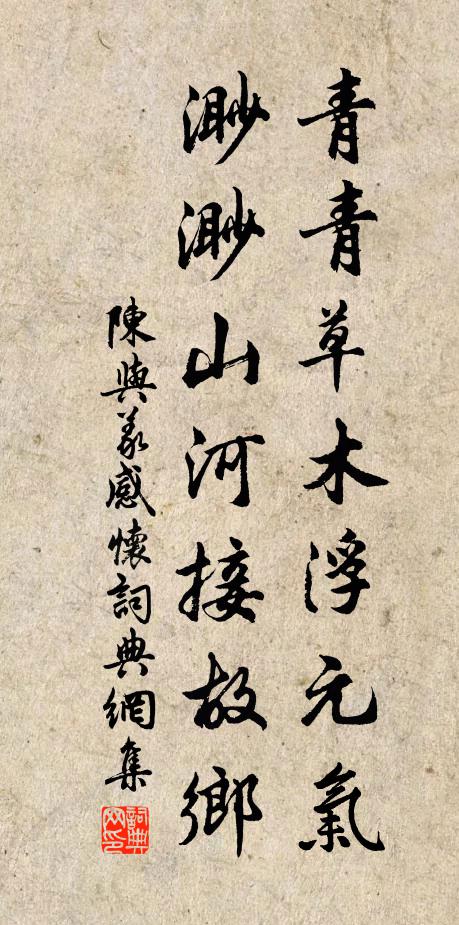 青青草木浮元氣
渺渺山河接故鄉
陳與義感懷詞典網集
詞典網印